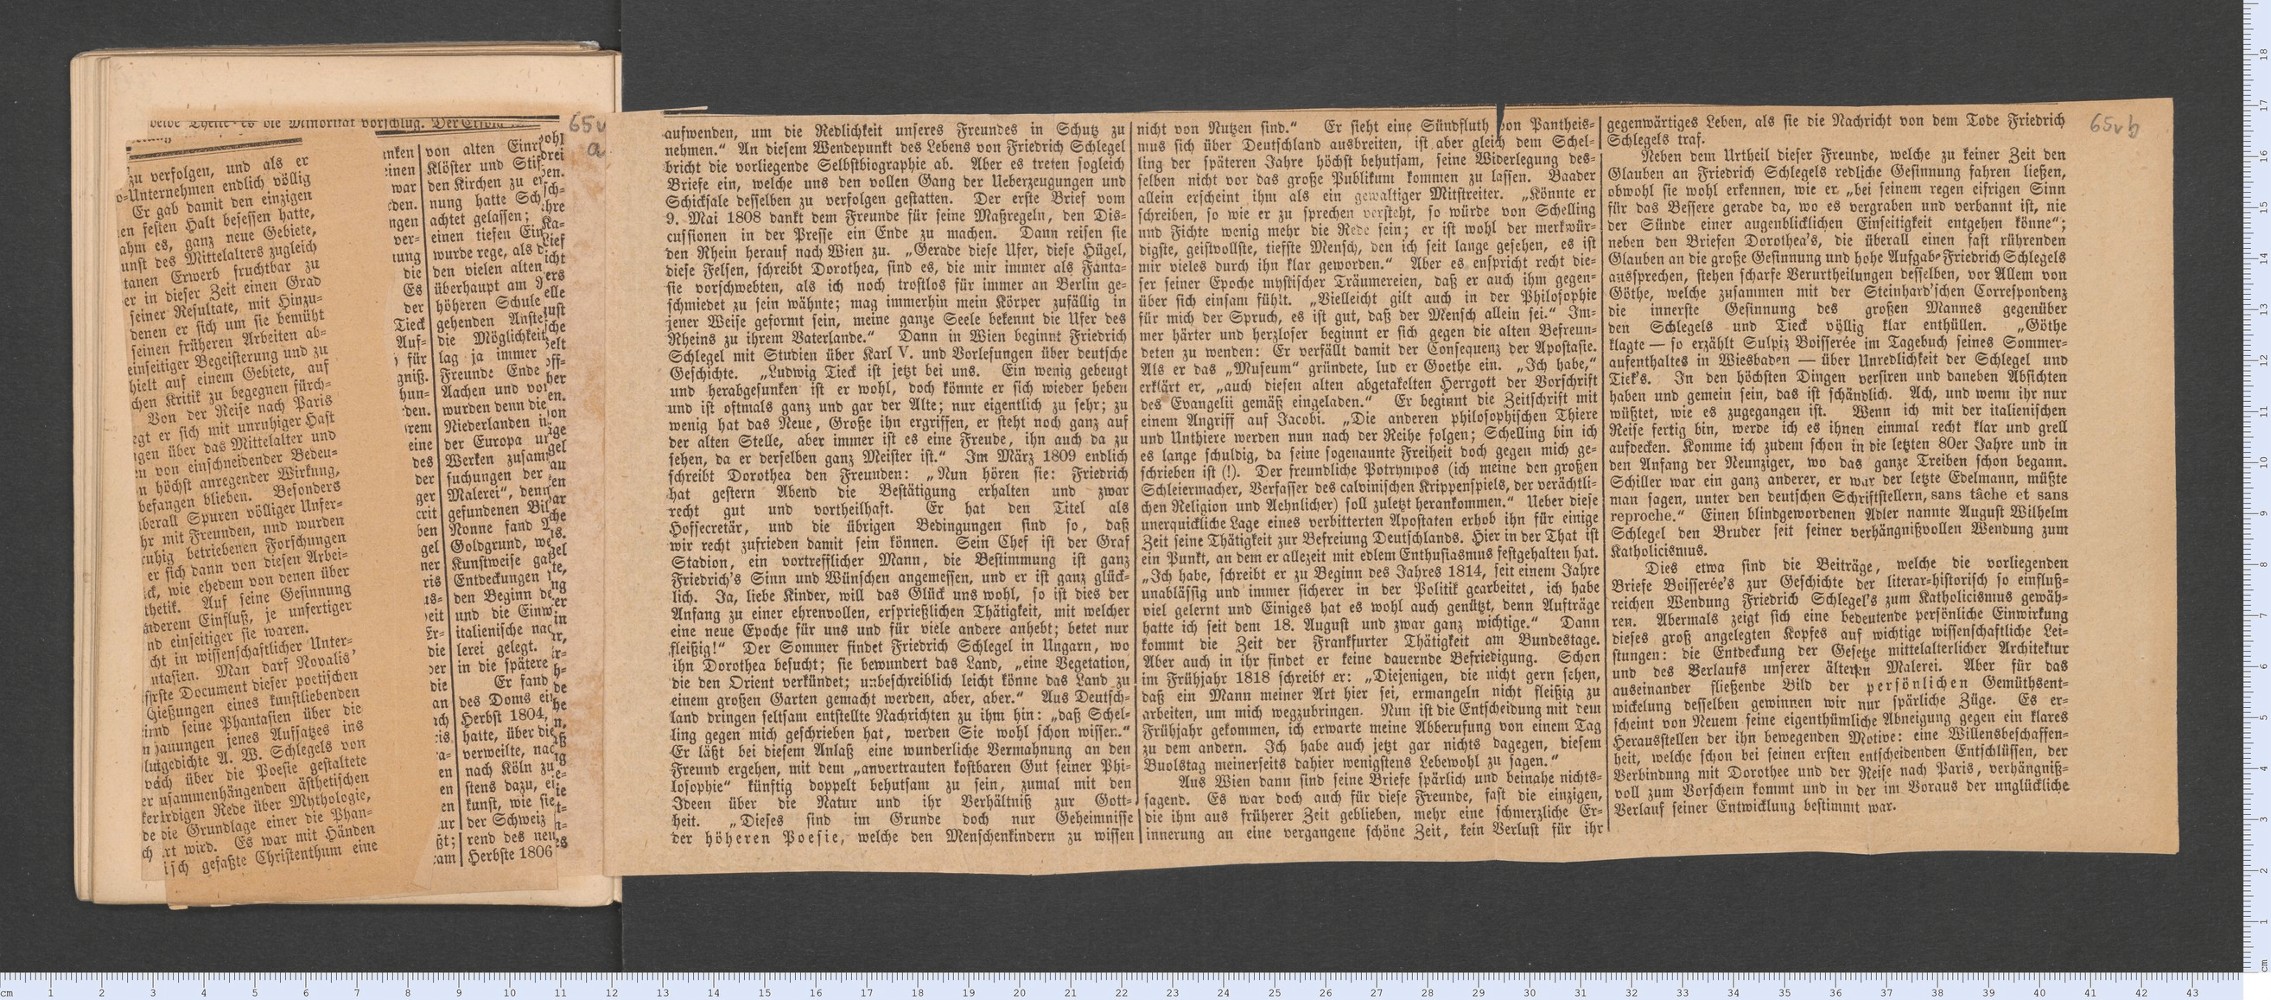 65v
a
65vb
beide Theile es die Minorität vorschlug.
zu verfolgen, und als er
Unternehmen endlich völlig
Er gab damit den einzigen
en festen Halt besessen hatte,
ahm es, ganz neue Gebiete,
unst des Mittelalters zugleich
tanen Erwerb fruchtbar zu
er in dieser Zeit einen Grad
seiner Resultate, mit Hinzu-
denen er sich um sie bemüht
seinen früheren Arbeiten ab-
einseitiger Begeisterung und zu
hielt auf einem Gebiete, auf
chen Kritik zu begegnen fürch-
Von der Reise nach Paris
gt er sich mit unruhiger Hast
gen über das Mittelalter und
n von einschneidender Bedeu-
n höchst anregender Wirkung,
befangen blieben. Besonders
berall Spuren völliger Unfer-
hr mit Freunden, und wurden
ruhig betriebenen Forschungen
er sich dann von diesen Arbei-
ck, wie ehedem von denen über
thetik. Auf seine Gesinnung
nderem Einfluß, je unfertiger
nd einseitiger sie waren.
cht in wissenschaftlicher Unter-
ntasien. Man darf Novalis'
fste Document dieser poetischen
Gießungen eines kunstliebenden
irnd seine Phantasien über die
n hauungen jenes Aufsatzes ins
lutgedichte A. W. Schlegels von
vach über die Poesie gestaltete
er usammenhängenden ästhetischen
ker irdigen Rede über Mythologie,
de die Grundlage einer die Phan-
ch rt wird. Es war mit Händen
isch gefaßte Christenthum eine
nken
einen
war
den.
ngen
ver-
ung
die
Es
der
Tieck
Auf-
für
gniß.
hun-
den.
rem
eine
des
der
ger
crit
ben
gel
ner
ris
us-
eit
Er-
die
der
die
an
ich
is.
ra-
en
en
en
ur
ßt;
am
von alten Einri
Klöster und Stif
den Kirchen zu er
nung hatte Sch
achtet gelassen;
einen tiefen Ein
wurde rege, als d
den vielen alten
überhaupt am
höheren Schule
gehenden Anste
die Möglichkeit
lag ja immer
Freunde Ende
Aachen und vo
wurden denn die
Niederlanden i
der Europa u
Werken zusam
suchungen der
Malerei“, denn
gefundenen Bil
Nonne fand
Goldgrund, we
Kunstweise ga
Entdeckungen
den Beginn de
und die Einw
italienische na
lerei gelegt.
in die spätere
Er fand
des Doms ei
Herbst 1804,
hatte, über die
verweilte, nac
nach Köln zu
stens dazu, e
kunst, wie sie
der Schweiz
rend des neu
Herbste 1806
aufwenden, um die Redlichkeit unseres Freundes in Schutz zu
nehmen.“ An diesem Wendepunkt des Lebens von Friedrich Schlegel
bricht die vorliegende Selbstbiographie ab. Aber es treten sogleich
Briefe ein, welche uns den vollen Gang der Ueberzeugungen und
Schicksale desselben zu verfolgen gestatten. Der erste Brief vom
9. Mai 1808 dankt dem Freunde für seine Maßregeln, den Dis-
cussionen in der Presse ein Ende zu machen. Dann reisen sie
den Rhein herauf nach Wien zu. „Gerade diese Ufer, diese Hügel,
diese Felsen, schreibt Dorothea, sind es, die mir immer als Fanta-
sie vorschwebten, als ich noch trostlos für immer an Berlin ge-
schmiedet zu sein wähnte; mag immerhin mein Körper zufällig in
jener Weise geformt sein, meine ganze Seele bekennt die Ufer des
Rheins zu ihrem Vaterlande.“ Dann in Wien beginnt Friedrich
Schlegel mit Studien über Karl V. und Vorlesungen über deutsche
Geschichte. „Ludwig Tieck ist jetzt bei uns. Ein wenig gebeugt
und herabgesunken ist er wohl, doch könnte er sich wieder heben
und ist oftmals ganz und gar der Alte; nur eigentlich zu sehr; zu
wenig hat das Neue, Große ihn ergriffen, er steht noch ganz auf
der alten Stelle, aber immer ist es eine Freude, ihn auch da zu
sehen, da er derselben ganz Meister ist.“ Im März 1809 endlich
schreibt Dorothea den Freunden: „Nun hören sie: Friedrich
hat gestern Abend die Bestätigung erhalten und zwar
recht gut und vortheilhaft. Er hat den Titel als
Hofsecretär, und die übrigen Bedingungen sind so, daß
wir recht zufrieden damit sein können. Sein Chef ist der Graf
Stadion, ein vortrefflicher Mann, die Bestimmung ist ganz
Friedrich's Sinn und Wünschen angemessen, und er ist ganz glück-
lich. Ja, liebe Kinder, will das Glück uns wohl, so ist dies der
Anfang zu einer ehrenvollen, ersprießlichen Thätigkeit, mit welcher
eine neue Epoche für uns und für viele andere anhebt; betet nur
fleißig!“ Der Sommer findet Friedrich Schlegel in Ungarn, wo
ihn Dorothea besucht; sie bewundert das Land, „eine Vegetation,
die den Orient verkündet; unbeschreiblich leicht könne das Land zu
einem großen Garten gemacht werden, aber, aber.“ Aus Deutsch-
land dringen seltsam entstellte Nachrichten zu ihm hin: „daß Schel-
ling gegen mich geschrieben hat, werden Sie wohl schon wissen.“
Er läßt bei diesem Anlaß eine wunderliche Vermahnung an den
Freund ergehen, mit dem „anvertrauten kostbaren Gut seiner Phi-
losophie“ künftig doppelt behutsam zu sein, zumal mit den
Ideen über die Natur und ihr Verhältniß zur Gott-
heit. „Dieses sind im Grunde doch nur Geheimnisse
der höheren Poesie, welche den Menschenkindern zu wissen
nicht von Nutzen sind.“ Er sieht eine Sündfluth von Pantheis-
mus sich über Deutschland ausbreiten, ist aber gleich dem Schel-
ling der späteren Jahre höchst behutsam, seine Widerlegung des-
selben nicht vor das große Publikum kommen zu lassen. Baader
allein erscheint ihm als ein gewaltiger Mitstreiter. „Könnte er
schreiben, so wie er zu sprechen versteht, so würde von Schelling
und Fichte wenig mehr die Rede sein; er ist wohl der merkwür-
digste, geistvollste, tiefste Mensch, den ich seit lange gesehen, es ist
mir vieles durch ihn klar geworden.“ Aber es enspricht recht die-
ser seiner Epoche mystischer Träumereien, daß er auch ihm gegen-
über sich einsam fühlt. „Vielleicht gilt auch in der Philosophie
für mich der Spruch, es ist gut, daß der Mensch allein sei.“ Im-
mer härter und herzloser beginnt er sich gegen die alten Befreun-
deten zu wenden: Er verfällt damit der Consequenz der Apostasie.
Als er das „Museum“ gründete, lud er Goethe ein. „Ich habe,“
erklärt er, „auch diesen alten abgetakelten Herrgott der Vorschrift
des Evangelii gemäß eingeladen.“ Er beginnt die Zeitschrift mit
einem Angriff auf Jacobi. „Die anderen philosophischen Thiere
und Unthiere werden nun nach der Reihe folgen; Schelling bin ich
es lange schuldig, da seine sogenannte Freiheit doch gegen mich ge-
schrieben ist (!). Der freundliche Potrympos (ich meine den großen
Schleiermacher, Verfasser des calvinischen Krippenspiels, der verächtli-
chen Religion und Aehnlicher) soll zuletzt herankommen.“ Ueber diese
unerquickliche Lage eines verbitterten Apostaten erhob ihn für einige
Zeit seine Thätigkeit zur Befreiung Deutschlands. Hier in der That ist
ein Punkt, an dem er allezeit mit edlem Enthusiasmus festgehalten hat.
„Ich habe, schreibt er zu Beginn des Jahres 1814, seit einem Jahre
unablässig und immer sicherer in der Politik gearbeitet, ich habe
viel gelernt und Einiges hat es wohl auch genützt, denn Aufträge
hatte ich seit dem 18. August und zwar ganz wichtige.“ Dann
kommt die Zeit der Frankfurter Thätigkeit am Bundestage.
Aber auch in ihr findet er keine dauernde Befriedigung. Schon
im Frühjahr 1818 schreibt er: „Diejenigen, die nicht gern sehen,
daß ein Mann meiner Art hier sei, ermangeln nicht fleißig zu
arbeiten, um mich wegzubringen. Nun ist die Entscheidung mit dem
Frühjahr gekommen, ich erwarte meine Abberufung von einem Tag
zu dem andern. Ich habe auch jetzt gar nichts dagegen, diesem
Buolstag meinerseits dahier wenigstens Lebewohl zu sagen.“
Aus Wien dann sind seine Briefe spärlich und beinahe nichts-
sagend. Es war doch auch für diese Freunde, fast die einzigen,
die ihm aus früherer Zeit geblieben, mehr eine schmerzliche Er-
innerung an eine vergangene schöne Zeit, kein Verlust für ihr
gegenwärtiges Leben, als sie die Nachricht von dem Tode Friedrich
Schlegels traf.
Neben dem Urtheil dieser Freunde, welche zu keiner Zeit den
Glauben an Friedrich Schlegels redliche Gesinnung fahren ließen,
obwohl sie wohl erkennen, wie er „bei seinem regen eifrigen Sinn
für das Bessere gerade da, wo es vergraben und verbannt ist, nie
der Sünde einer augenblicklichen Einseitigkeit entgehen könne“;
neben den Briefen Dorothea's, die überall einen fast rührenden
Glauben an die große Gesinnung und hohe Aufgabe Friedrich Schlegels
aussprechen, stehen scharfe Verurtheilungen desselben, vor Allem von
Göthe, welche zusammen mit der Steinhard'schen Correspondenz
die innerste Gesinnung des großen Mannes gegenüber
den Schlegels und Tieck völlig klar enthüllen. „Göthe
klagte — so erzählt Sulpiz Boisserée im Tagebuch seines Sommer-
aufenthaltes in Wiesbaden — über Unredlichkeit der Schlegel und
Tiek's. In den höchsten Dingen versiren und daneben Absichten
haben und gemein sein, das ist schändlich. Ach, und wenn ihr nur
wüßtet, wie es zugegangen ist. Wenn ich mit der italienischen
Reise fertig bin, werde ich es ihnen einmal recht klar und grell
aufdecken. Komme ich zudem schon in die letzten 80er Jahre und in
den Anfang der Neunziger, wo das ganze Treiben schon begann.
Schiller war ein ganz anderer, er war der letzte Edelmann, müßte
man sagen, unter den deutschen Schriftstellern, sans tâche et sans
reproche.“ Einen blindgewordenen Adler nannte August Wilhelm
Schlegel den Bruder seit seiner verhängnißvollen Wendung zum
Katholicismus.
Dies etwa sind die Beiträge, welche die vorliegenden
Briefe Boisserée's zur Geschichte der literar-historisch so einfluß-
reichen Wendung Friedrich Schlegel's zum Katholicismus gewäh-
ren. Abermals zeigt sich eine bedeutende persönliche Einwirkung
dieses groß angelegten Kopfes auf wichtige wissenschaftliche Lei-
stungen: die Entdeckung der Gesetze mittelalterlicher Architektur
und des Verlaufs unserer älteren Malerei. Aber für das
auseinander fließende Bild der persönlichen Gemüthsent-
wickelung desselben gewinnen wir nur spärliche Züge. Es er-
scheint von Neuem seine eigenthümliche Abneigung gegen ein klares
Herausstellen der ihn bewegenden Motive: eine Willensbeschaffen-
heit, welche schon bei seinen ersten entscheidenden Entschlüssen, der
Verbindung mit Dorothee und der Reise nach Paris, verhängniß-
voll zum Vorschein kommt und in der im Voraus der unglückliche
Verlauf seiner Entwicklung bestimmt war.